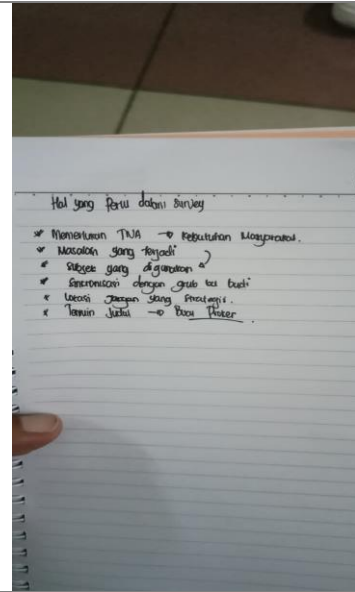 Hal yang Perlu dalam Survey
* Menentukan TNA → Kebutuhan Masyarakat.
* Masalah yang terjadi
* Subjek yang digunakan
* Sincronisasi dengan grub bu budi
* Lokasi yang Strategis.
* Temuin Judul → Buku Proker